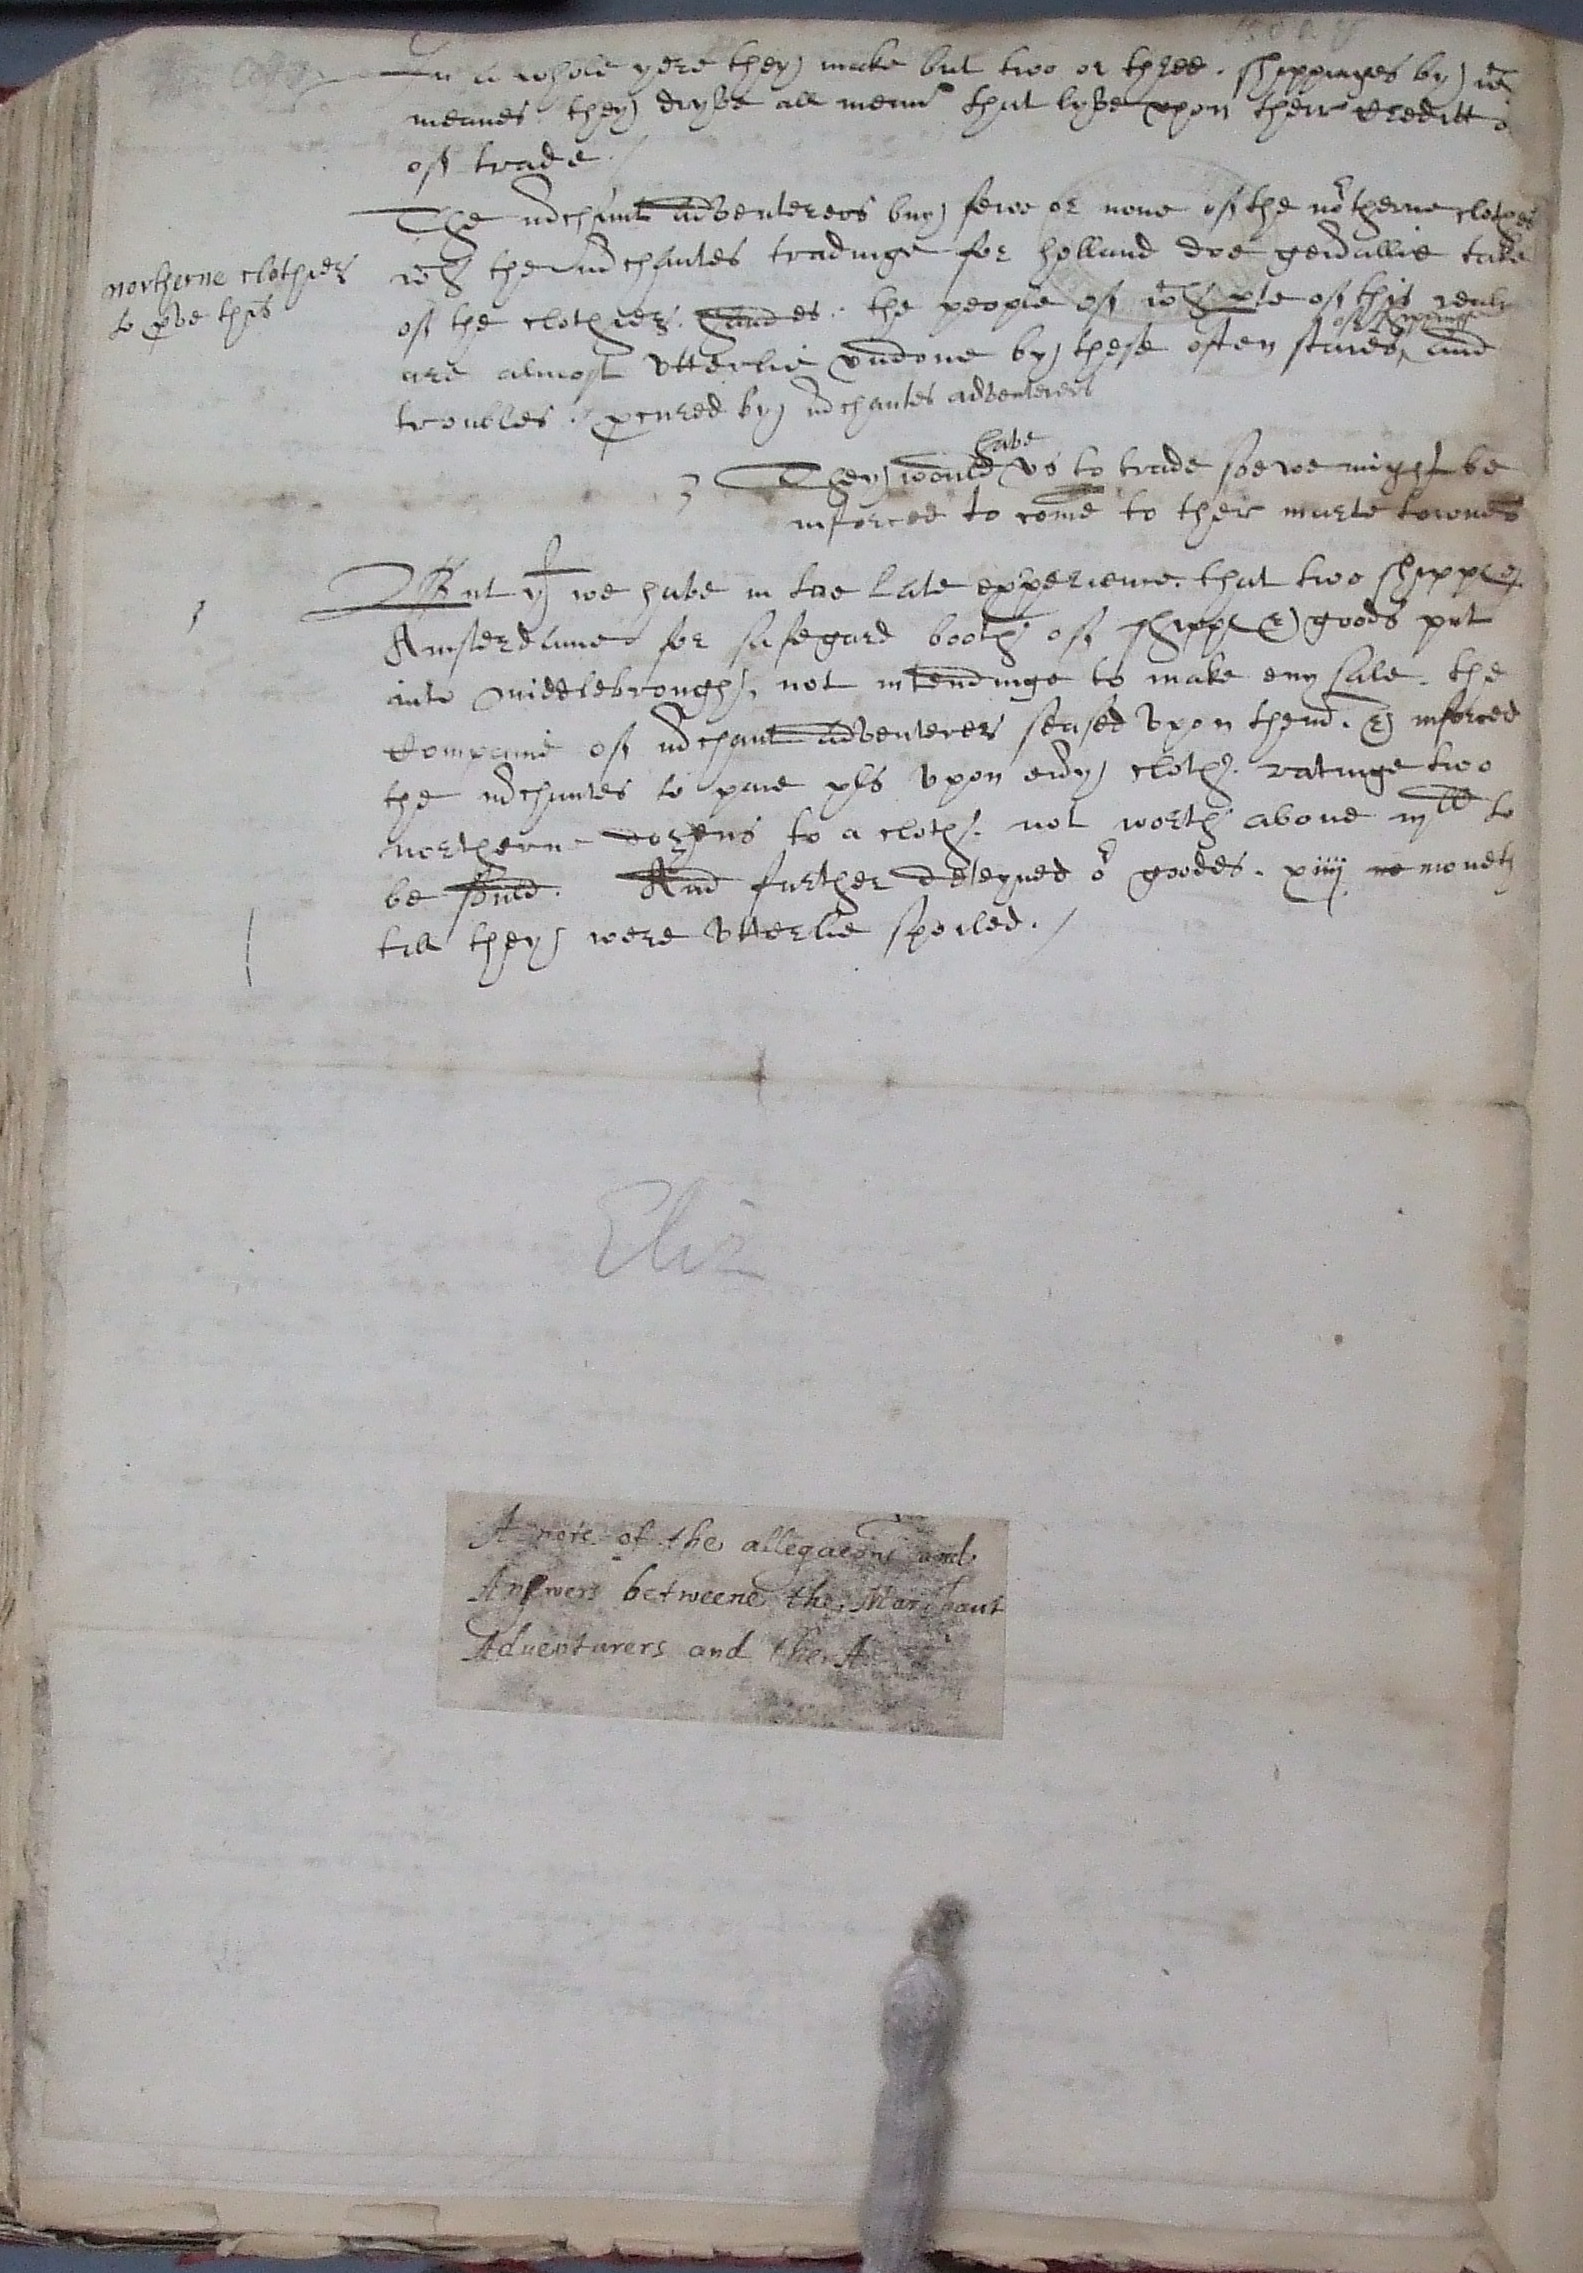 In a whole yere they make but two or three shippinges by wch
meanes they dryve all menn that lyve upon their creditt
of trade.
The mchant adventerers buy fewe or none of the notherne clothes
wch the mchantes tradinge for Holland doe generallie take
northerne clothiers
to prove this
of the clothiers handes. the people of wch pte of this realm
are almost utterlie undone by these often staies of shippinge and
troubles. pcured by mchantes adventerers
3 They would have us to trade soe we might be
inforced to come to their marte townes
But yf we have in too late experience. that two shippes
Amsterdame for safegard booth of shipps & goods put
into Middlebrough, not intendinge to make eny sale. the
Companie of mchant adventerers seased upon them. & inforced
the mchantes to paie xls upon every cloth. ratinge two
northern dozens to a cloth. not worth above iijli to
be sould. And further deteyned or goodes. xiiij moneth
till they were utterlie spoiled.
Eliz
A note of the allegacons and
Answers betweene the Marchant
Adventurers and ther A